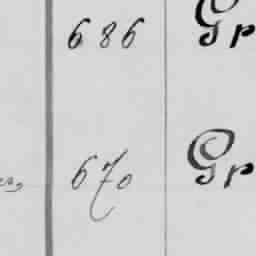 686 Gr
670 Gr